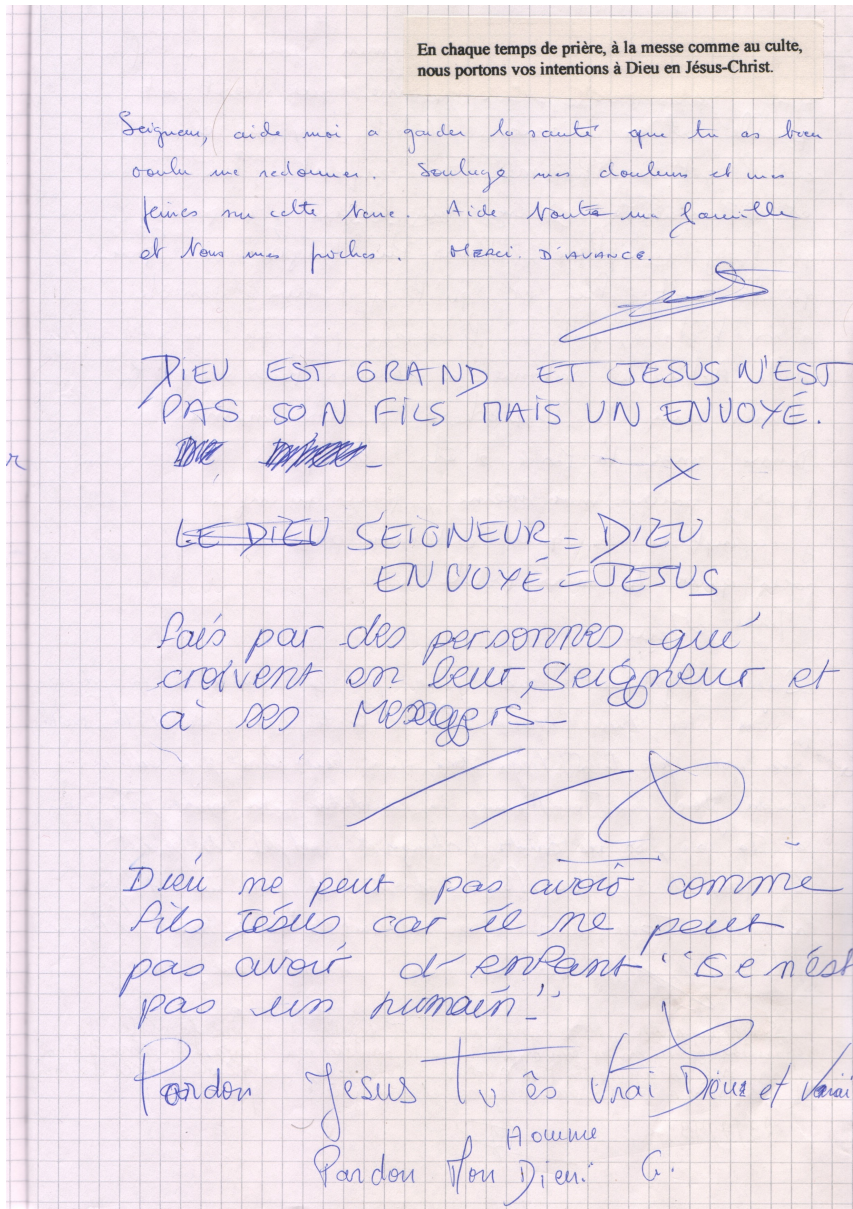 En chaque temps de prière, à la messe comme au culte,
nous portons vos intentions à Dieu en Jésus-Christ.
Seigneur, aide moi a garder la santé que tu as bien
voulu me redonner. Soulage mes douleurs et mes
peines sur cette terre. Aide toute ma famille
et tous mes proches. MERCI. D'AVANCE.
DIEU EST GRAND ET JESUS N'EST
PAS SON FILS MAIS UN ENVOYÉ.
LE DIEU SEIGNEUR = DIEU
ENVOYÉ = JESUS
fais par des personnes qui
croivent en leur Seigneur et
à ses Messagers
Dieu ne peut pas avoir comme
fils Jésus car il ne peut
pas avoir d'enfant "Ce n'est
pas un humain!"
Pardon Jésus Tu ès Vrai Dieu et Vrai
Homme
Pardon Mon Dieu. G.